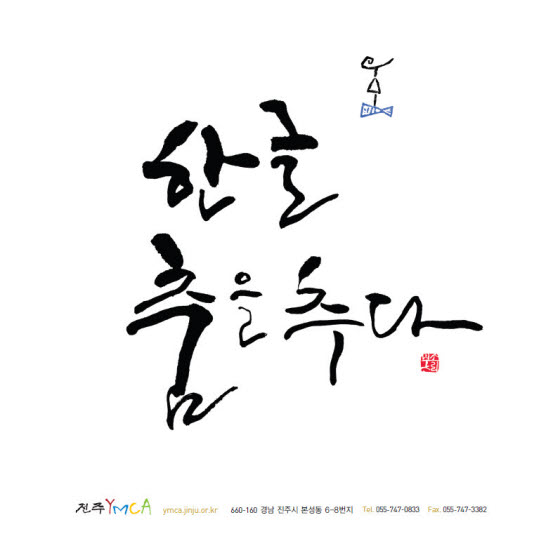 한글
춤을 추다
진주YMCA ymca.jinju.or.kr 660-160 경남 진주시 본성동 6-8번지 Tel. 055-747-0833 Fax. 055-747-3382